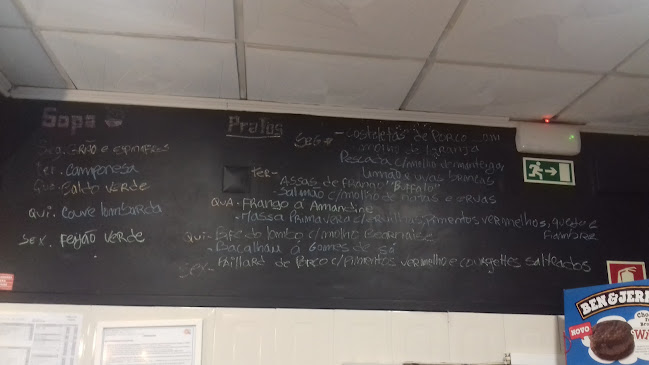 Sopa
Seg. Grão e espinafres
Ter. Camponesa
Qua. Caldo Verde
Qui. Couve lombarda
Sex. Feijão Verde
Pratos
Seg - Costeletas de Porco com
molho de laranja
Pescada c/molho de manteiga,
limão e uvas brancas
Ter- Assas de frango "Buffalo"
- Salmão c/molho de natas e
Qua- Frango á Amandine
- Massa Primavera c/ervilhas, pimentos vermelhos, queijo e
Fiambre
Qui- Bife do lombo c/molho Bearnaise
- Bacalhau á Gomes de Sá
Sex- Paillard de Porco c/Pimentos vermelho e courgettes salteados
BEN & JERRY
NOVO